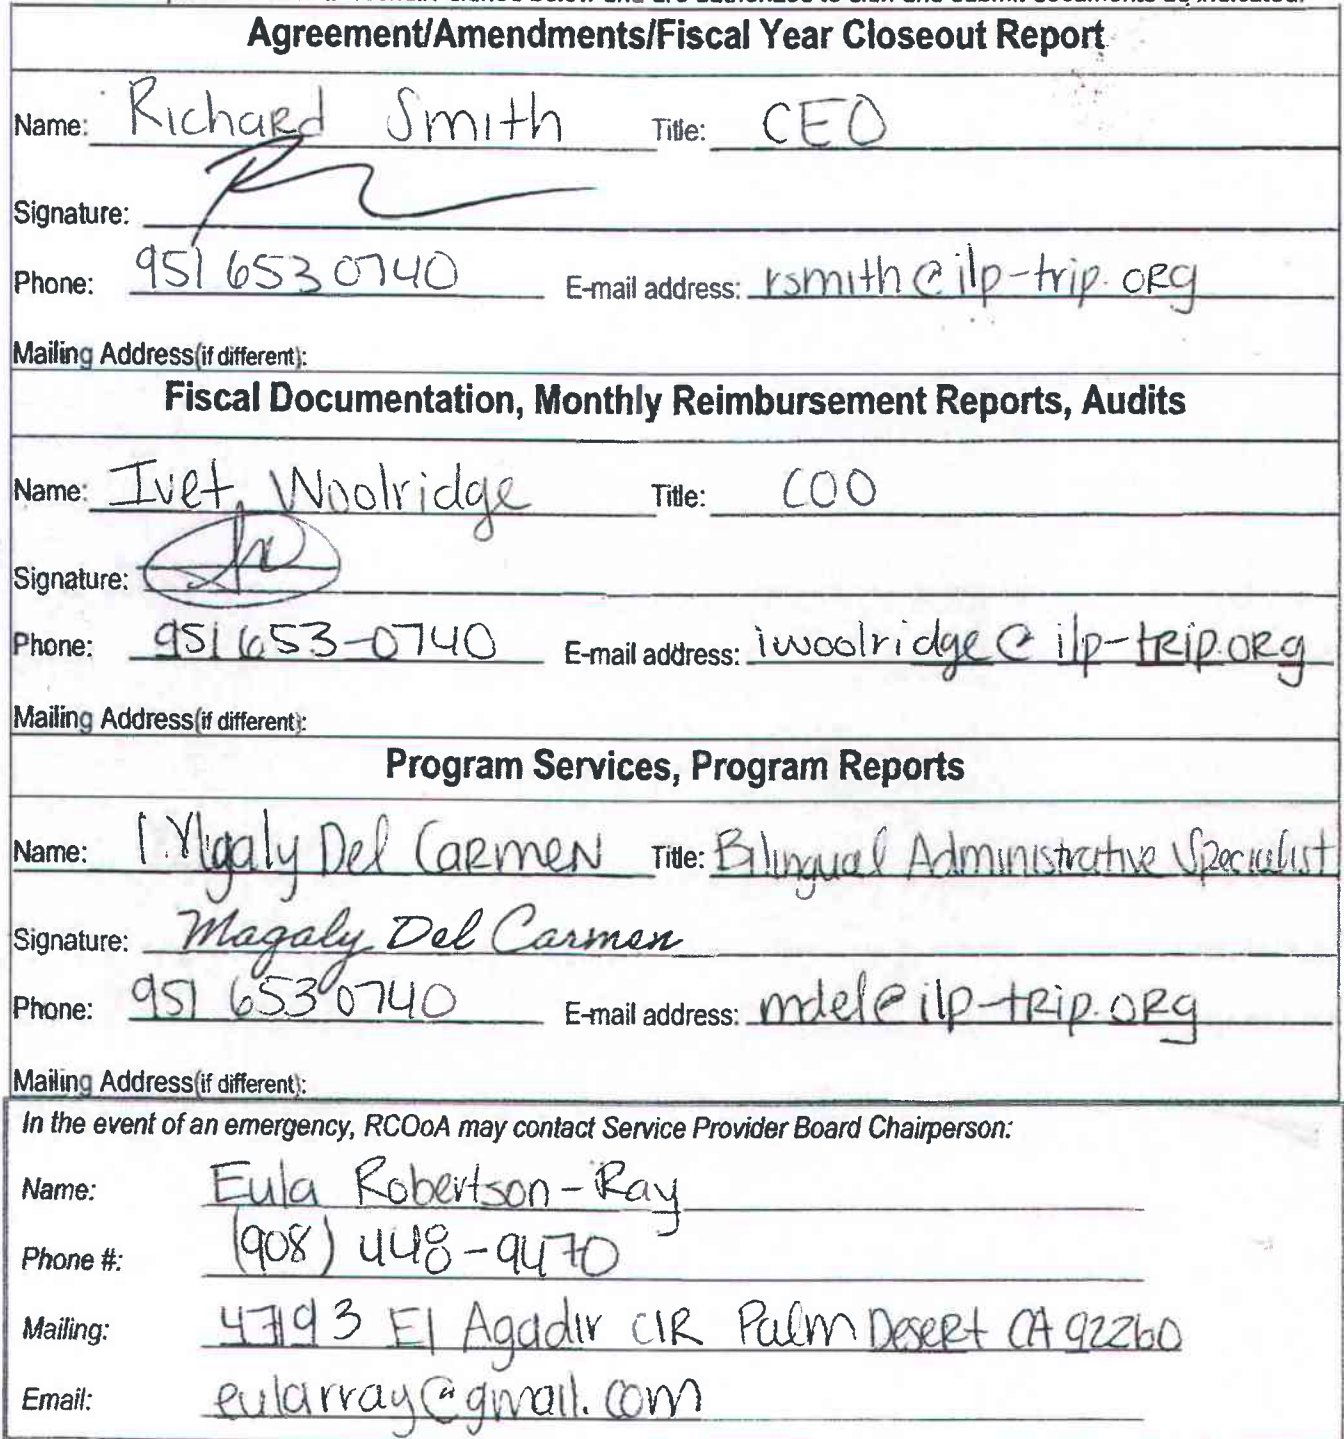 below and are authorized to sign and submit documents as indicated.
Agreement/Amendments/Fiscal Year Closeout Report
Name: Richard Smith Title: CEO
Signature:
Phone: 951 653 0740 E-mail address: rsmith@ilp-trip.org
Mailing Address(if different):
Fiscal Documentation, Monthly Reimbursement Reports, Audits
Name: Ivet Woolridge Title: COO
Signature:
Phone: 951 653-0740 E-mail address: iwoolridge@ilp-trip.org
Mailing Address(if different):
Program Services, Program Reports
Name: Del Carmen Title: Bilingual Administrative Specialist
Signature: Magaly Del Carmen
Phone: 951 653 0740 E-mail address: mdel@ilp-trip.org
Mailing Address(if different):
In the event of an emergency, RCOoA may contact Service Provider Board Chairperson:
Name: Eula Robertson-Ray
Phone #: (908) 448-9470
Mailing: 4793 El Agadir CIR Palm Desert CA 92260
Email: eularray@gmail.com